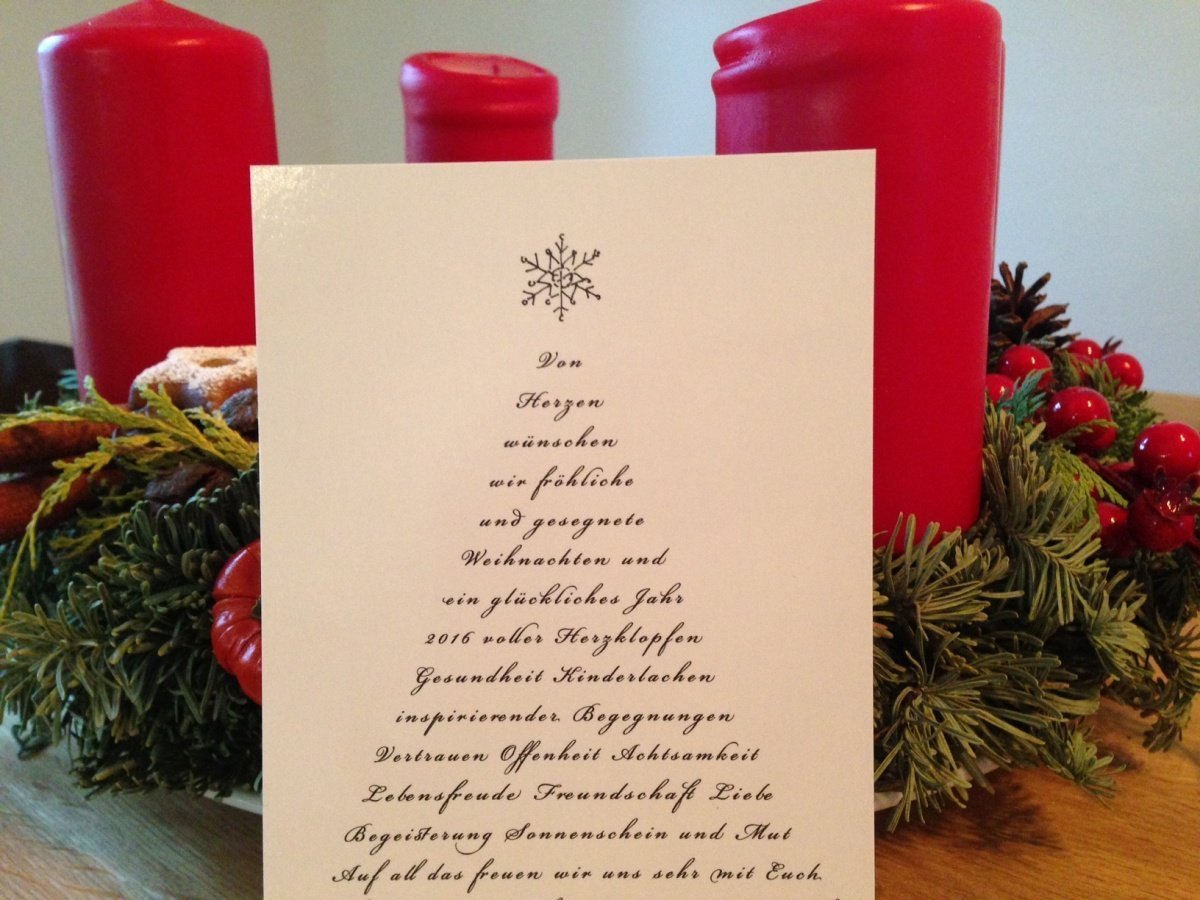 Von
Herzen
wünschen
wir fröhliche
und gesegnete
Weihnachten und
ein glückliches Jahr
2016 voller Herzklopfen
Gesundheit Kinderlachen
inspirierender Begegnungen
Vertrauen Offenheit Achtsamkeit
Lebensfreude Freundschaft Liebe
Begeisterung Sonnenschein und Mut
Auf all das freuen wir uns sehr mit Euch